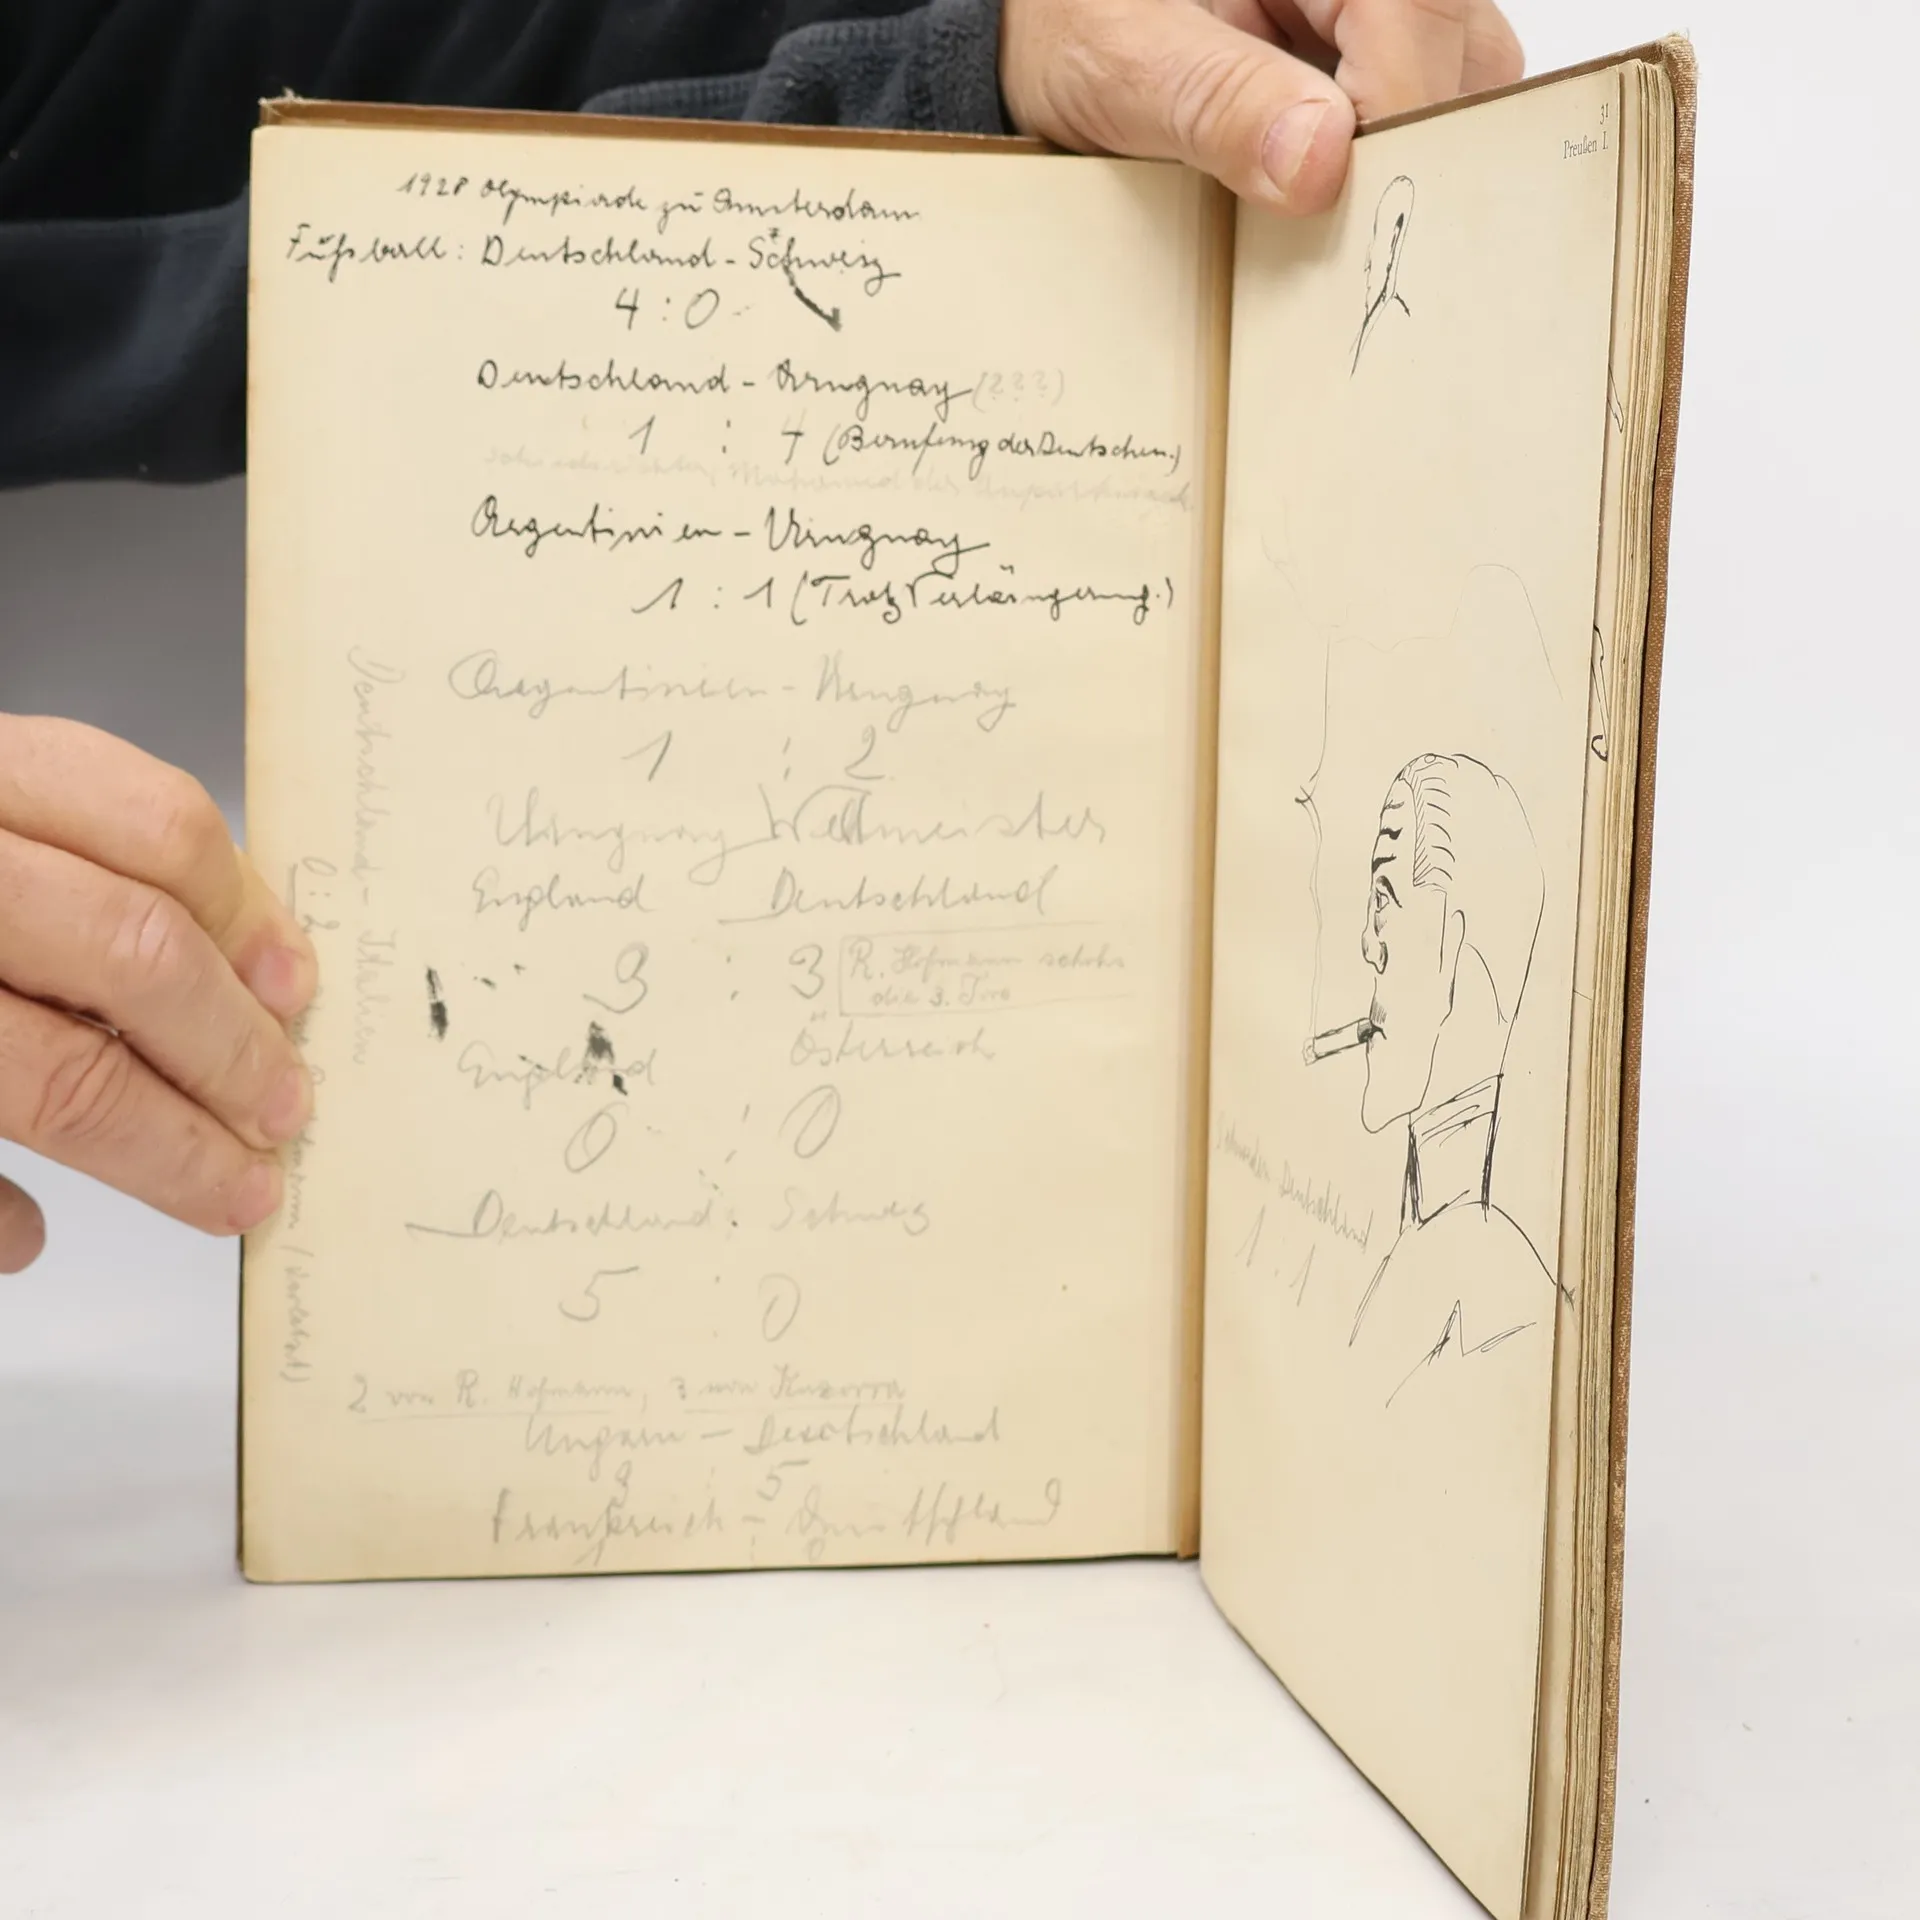 1928 Olympiade zu Amsterdam
Fußball: Deutschland - Schweiz
4 : 0
Deutschland - Uruguay (???)
1 : 4 (Berufung der Deutschen.)
Schiedsrichter, Mohamed der
Argentinien - Uruguay
1 : 1 (Trotz Verlängerung.)
Argentinien - Uruguay
1 : 2
Uruguay Weltmeister
England Deutschland
3 : 3 R. Hofmann schoß
die 3. Tore
England Österreich
0 : 0
Deutschland : Schweiz
5 : 0
2 von R. Hofmann, 3 von Kuzorra
Ungarn - Deutschland
3 : 5
Frankreich - Deutschland
1 : 0
Deutschland - Italien
0 : 2
(verletzt)
31
Preußen I.
Deutschland
1 : 1